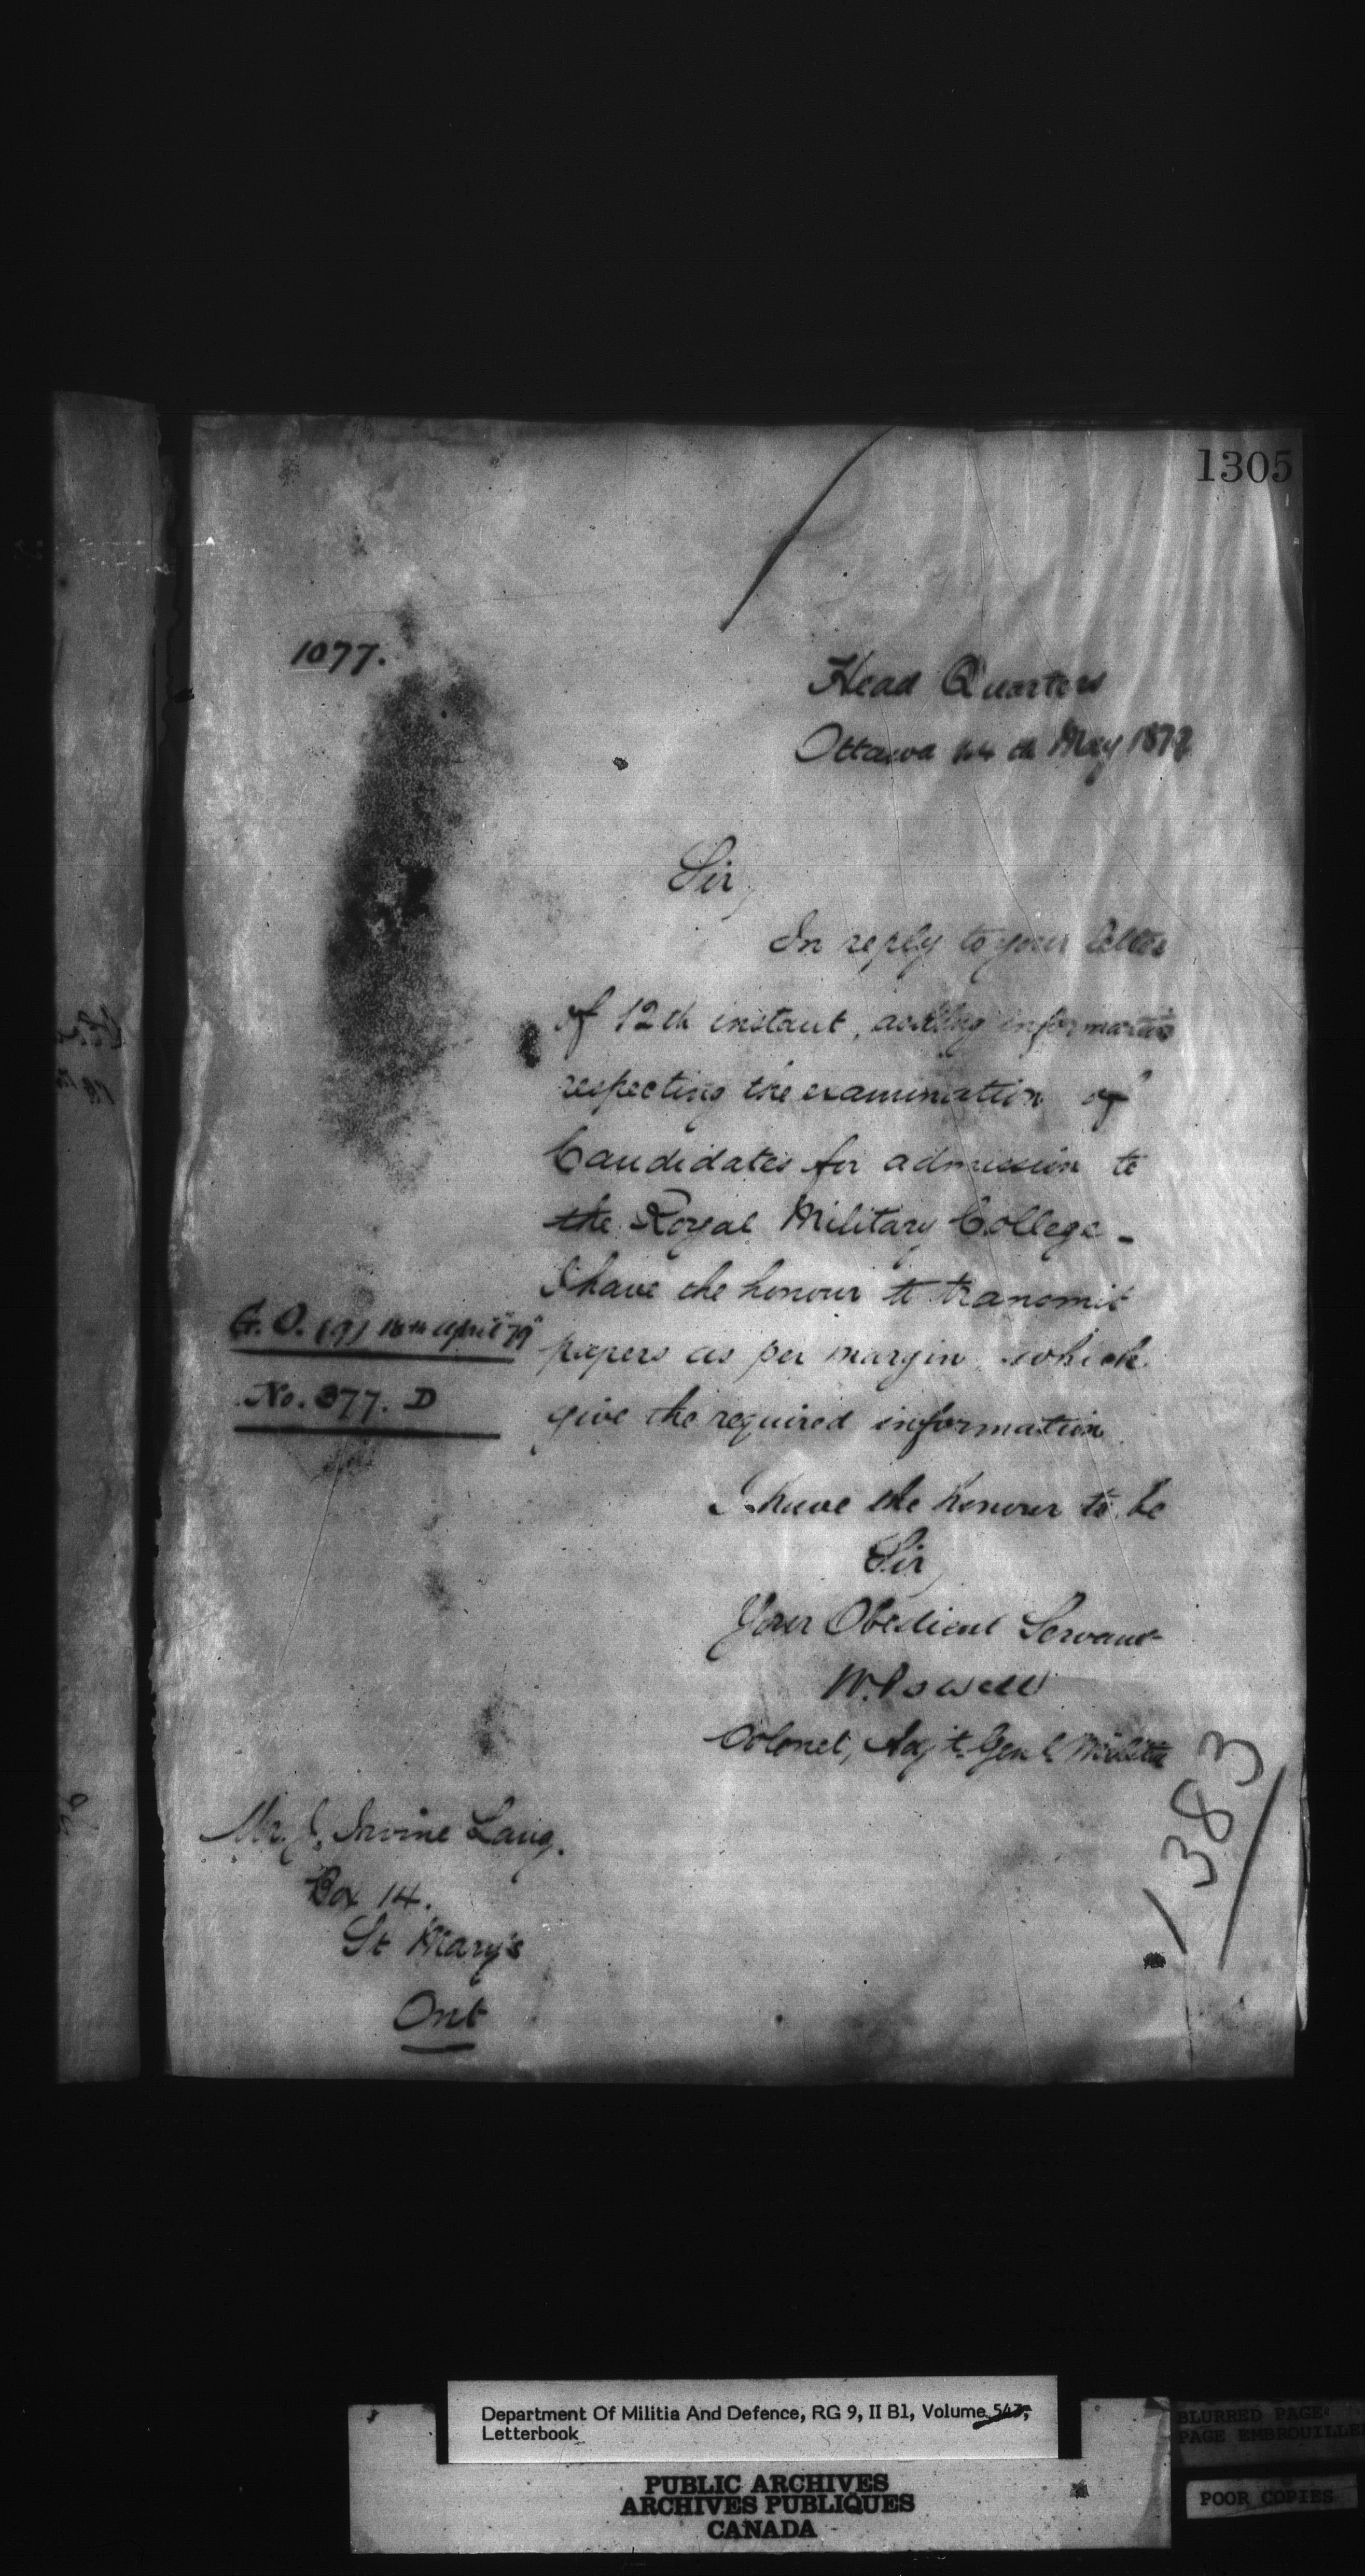 1305
1077.
Head Quarters
Ottawa 14th May 1879
Sir,
In reply to your letter
of 12th instant, asking information
respecting the examination of
Candidates for admission to
the Royal Military College -
I have the honour to transmit
G. O. (9) 18th April "79"
papers as per margin which
No. 377. D
give the required information
I have the honour to be
Sir,
Your Obedient Servant
W. Powell
Colonel, Adjt. Genl. Militia
383
Mr. J. Irvine Lang.
Box 14.
St Mary's
Ont
Department Of Militia And Defence, RG 9, II B1, Volume 547,
Letterbook
PUBLIC ARCHIVES
ARCHIVES PUBLIQUES
CANADA
BLURRED PAGE
PAGE EMBROUILLE
POOR COPIES